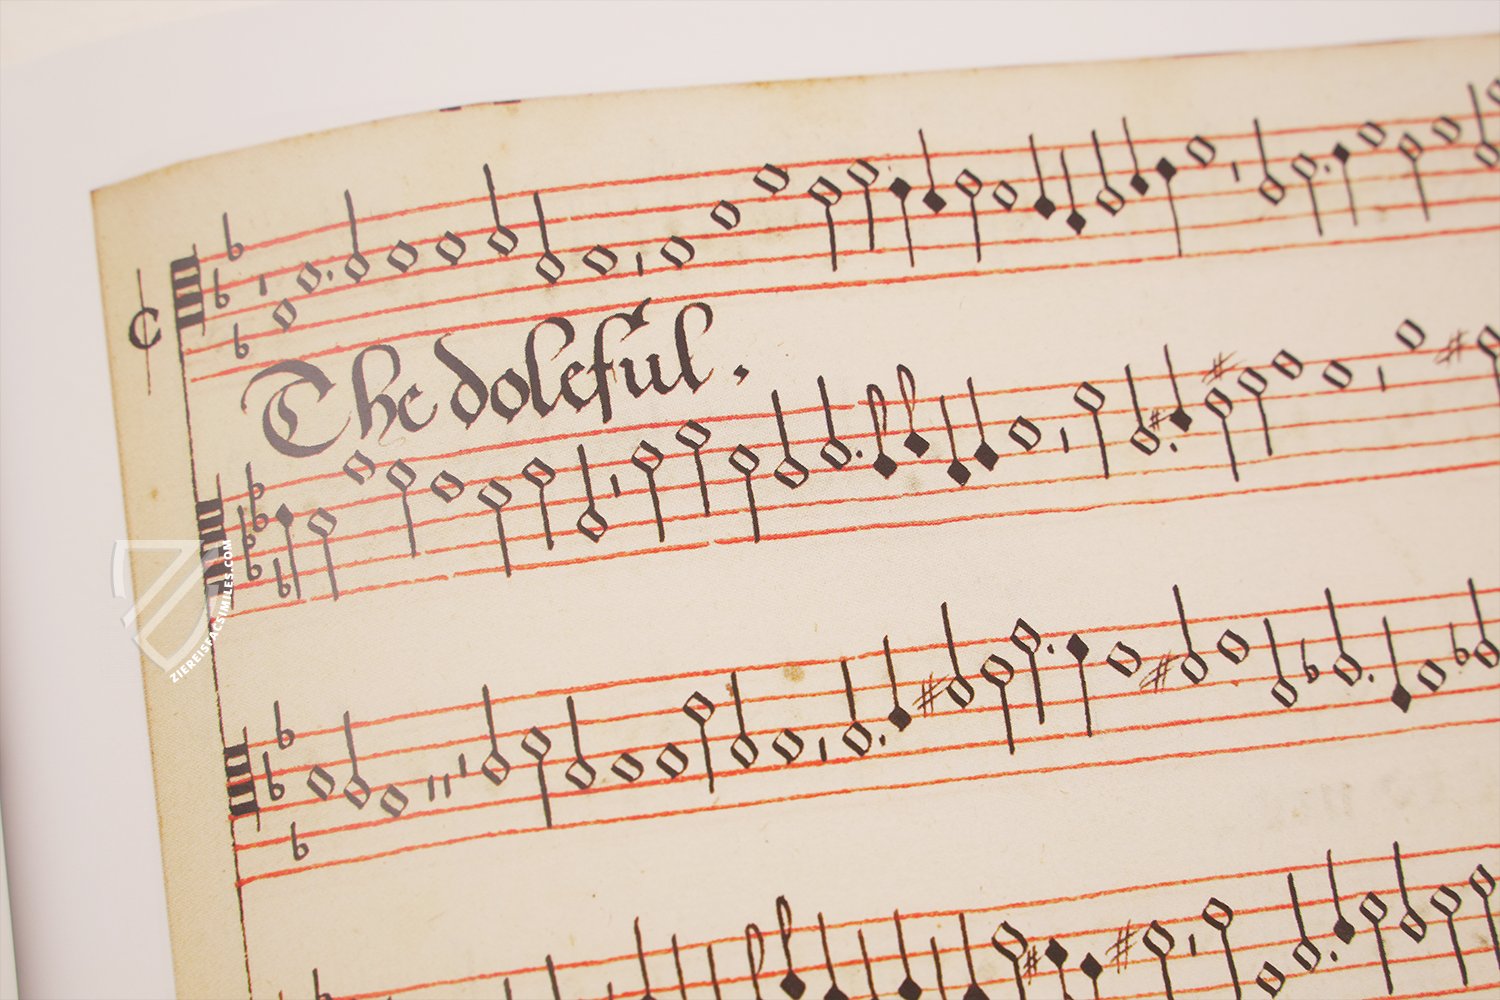 The doleful.
ZIEREISFACSIMILES.COM